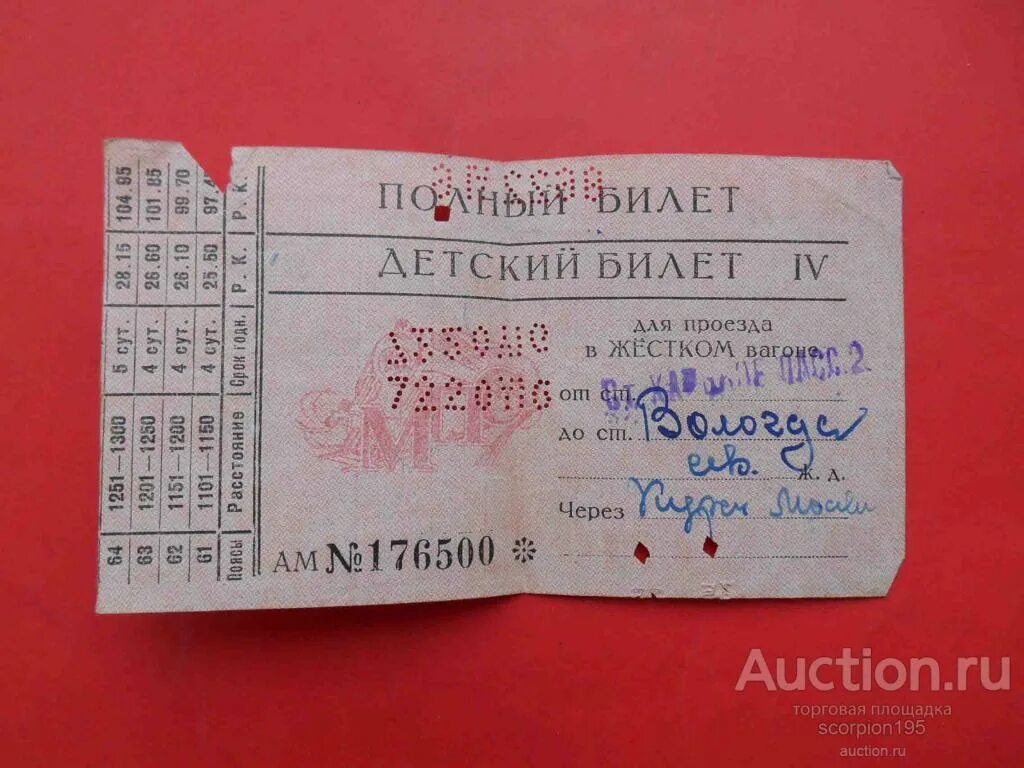 ПОЛНЫЙ БИЛЕТ
ДЕТСКИЙ БИЛЕТ IV
для проезда
в ЖЁСТКОМ вагоне
от ст. ПАСС. 2
до ст. Вологда
сев. ж. д.
Через Москв
АМ № 176500 *
Поясы 61 62 63 64
Расстояние 1101—1150 1151—1200 1201—1250 1251—1300
Срок годн. 4 сут. 4 сут. 4 сут. 5 сут.
Р. К. 25.50 26.10 26.60 28.15
Р. К. 97.4 99.70 101.85 104.95
Auction.ru
торговая площадка
scorpion195
auction.ru